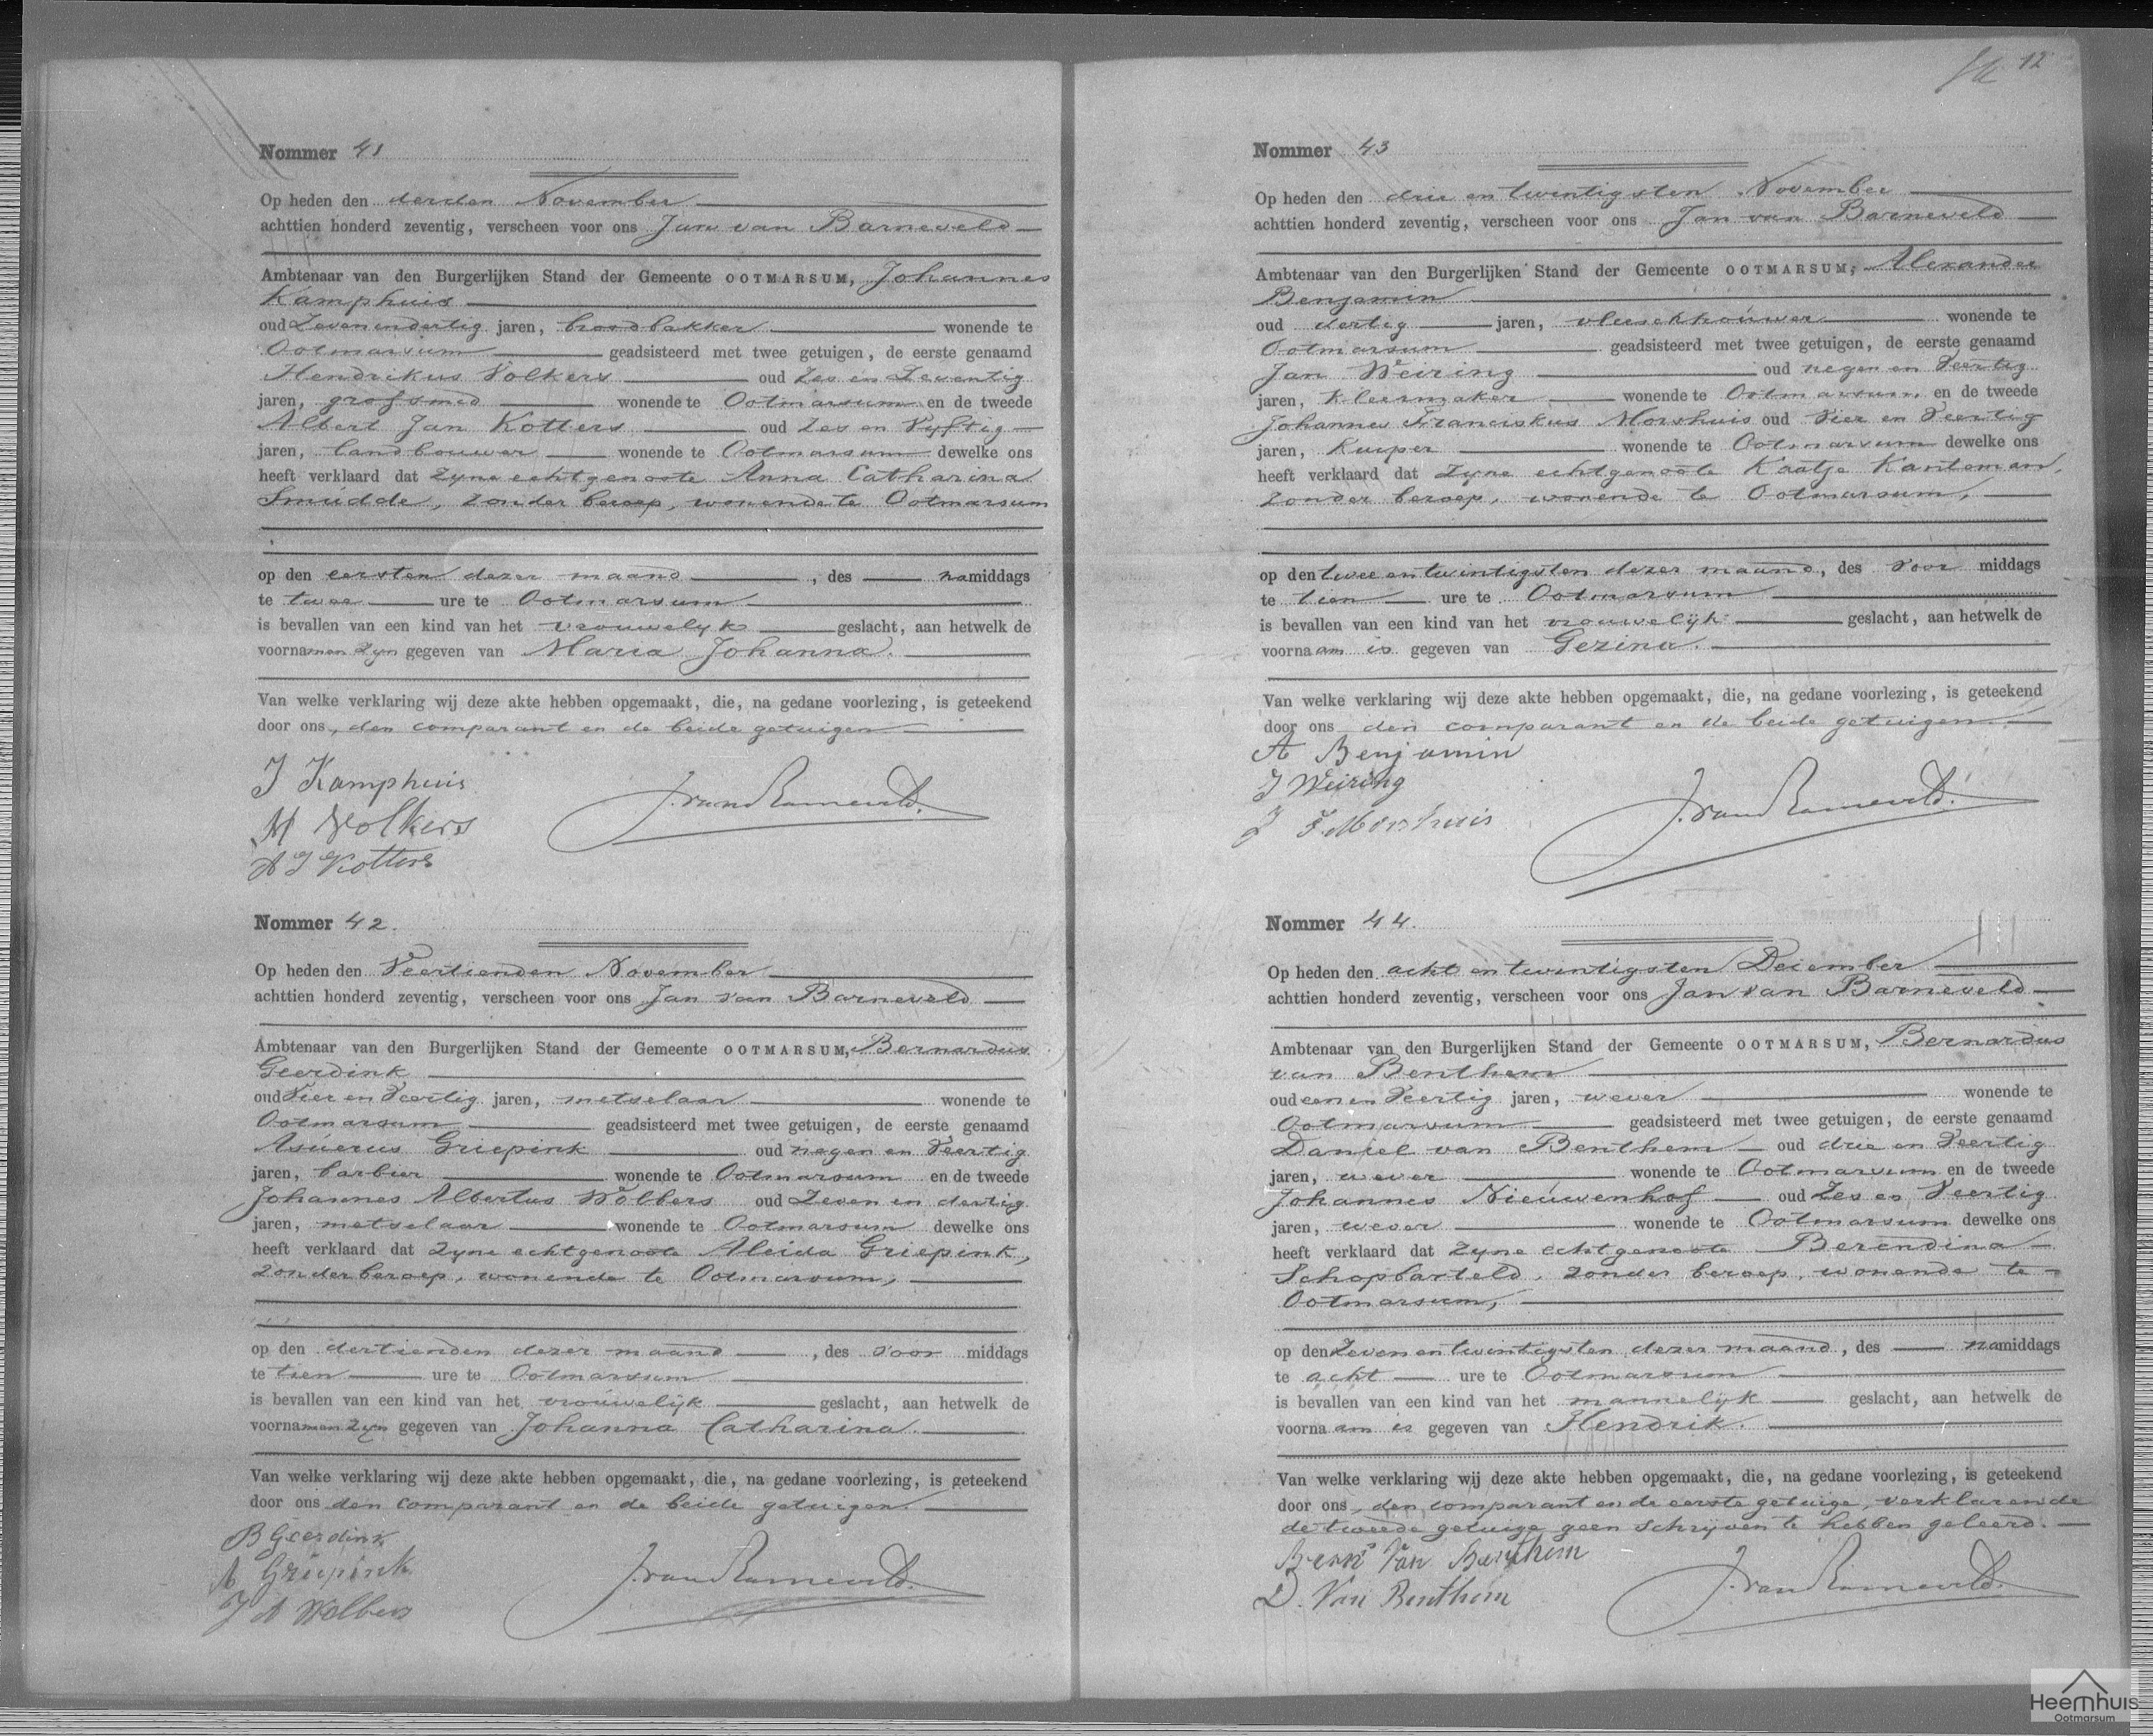 Nommer 41
Op heden den derden November
achttien honderd zeventig, verscheen voor ons Jan van Barneveld
Ambtenaar van den Burgerlijken Stand der Gemeente OOTMARSUM, Johannes
Kamphuis
oud Zevenendertig jaren, broodbakker wonende te
Ootmarsum geadsisteerd met twee getuigen, de eerste genaamd
Hendrikus Volkers oud Zes en Zeventig
jaren, grofsmed wonende te Ootmarsum en de tweede
Albert Jan Kotters oud Zes en Vyftig
jaren, landbouwer wonende te Ootmarsum dewelke ons
heeft verklaard dat zyne echtgenoote Anna Catharina
Smudde, zonder beroep, wonende te Ootmarsum
op den eersten dezer maand, des namiddags
te twee ure te Ootmarsum
is bevallen van een kind van het vrouwelyk geslacht, aan hetwelk de
voornamen zyn gegeven van Maria Johanna.
Van welke verklaring wij deze akte hebben opgemaakt, die, na gedane voorlezing, is geteekend
door ons, den comparant en de beide getuigen
J Kamphuis
H Volkers
A J Kotters
J. van Barneveld.
Nommer 42.
Op heden den Veertienden November
achttien honderd zeventig, verscheen voor ons Jan van Barneveld
Ambtenaar van den Burgerlijken Stand der Gemeente OOTMARSUM, Bernardus
Geerdink
oud Vier en Veertig jaren, metselaar wonende te
Ootmarsum geadsisteerd met twee getuigen, de eerste genaamd
Asuerus Griepink oud negen en Veertig
jaren, barbier wonende te Ootmarsum en de tweede
Johannes Albertus Wolbers oud Zeven en dertig
jaren, metselaar wonende te Ootmarsum dewelke ons
heeft verklaard dat zyne echtgenoote Aleida Griepink,
zonder beroep, wonende te Ootmarsum,
op den dertienden dezer maand, des voor middags
te tien ure te Ootmarsum
is bevallen van een kind van het vrouwelijk geslacht, aan hetwelk de
voornamen zyn gegeven van Johanna Catharina.
Van welke verklaring wij deze akte hebben opgemaakt, die, na gedane voorlezing, is geteekend
door ons den comparant en de beide getuigen.
B Geerdink
A Griepink
J A Wolbers
J. van Barneveld.
12
Nommer 43
Op heden den drie en twintigsten November
achttien honderd zeventig, verscheen voor ons Jan van Barneveld
Ambtenaar van den Burgerlijken Stand der Gemeente OOTMARSUM, Alexander
Benjamin
oud dertig jaren, vleeschhouwer wonende te
Ootmarsum geadsisteerd met twee getuigen, de eerste genaamd
Jan Weiring oud negen en Veertig
jaren, Kleermaker wonende te Ootmarsum, en de tweede
Johannes Franciskus Morshuis oud Vier en Veertig
jaren, Kuiper wonende te Ootmarsum dewelke ons
heeft verklaard dat zyne echtgenoote Kaatje Kanteman,
zonder beroep, wonende te Ootmarsum,
op den twee en twintigsten dezer maand, des voor middags
te tien ure te Ootmarsum
is bevallen van een kind van het vrouwelijk geslacht, aan hetwelk de
voornaam is gegeven van Gezina.
Van welke verklaring wij deze akte hebben opgemaakt, die, na gedane voorlezing, is geteekend
door ons den comparant en de beide getuigen
A Benjamin
J Weiring
J F Morshuis
J. van Barneveld.
Nommer 44.
Op heden den acht en twintigsten December
achttien honderd zeventig, verscheen voor ons Jan van Barneveld
Ambtenaar van den Burgerlijken Stand der Gemeente OOTMARSUM, Bernardus
van Benthem
oud een en Veertig jaren, wever wonende te
Ootmarsum geadsisteerd met twee getuigen, de eerste genaamd
Daniel van Benthem oud drie en Veertig
jaren, wever wonende te Ootmarsum en de tweede
Johannes Nieuwenhof oud Zes en Veertig
jaren, wever wonende te Ootmarsum dewelke ons
heeft verklaard dat zyne echtgenoote Berendina
Schopbarteld, zonder beroep, wonende te
Ootmarsum,
op den Zeven en twintigsten dezer maand, des namiddags
te acht ure te Ootmarsum
is bevallen van een kind van het mannelyk geslacht, aan hetwelk de
voornaam is gegeven van Hendrik.
Van welke verklaring wij deze akte hebben opgemaakt, die, na gedane voorlezing, is geteekend
door ons, den comparant en de eerste getuige, verklarende
de tweede getuige geen schrijven te hebben geleerd.
Bern's Van Benthem
D. Van Benthem
J. van Barneveld.
Heemhuis
Ootmarsum